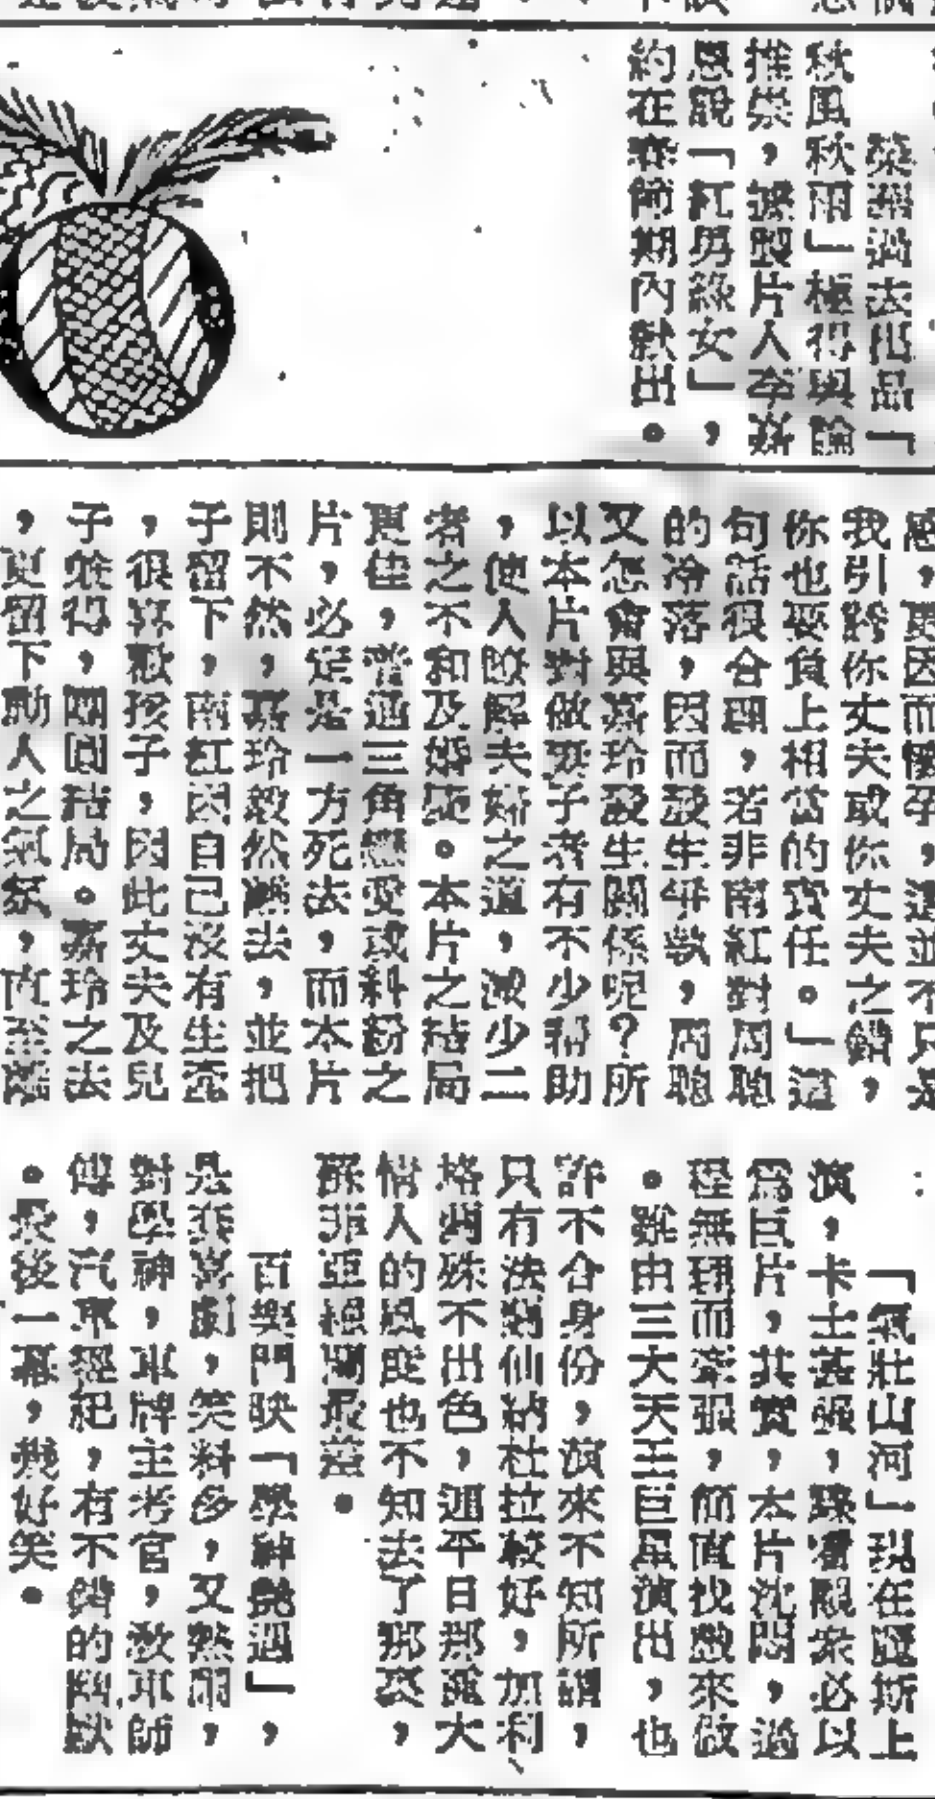 榮華過去出品「
秋風秋雨」極得輿論
推崇，據製片人李嘉
恩說「紅男綠女」，
約在春節期內獻出。
感，更因而懷孕，這並不只是
我引誘你丈夫或你丈夫之錯，
你也要負上相當的責任。」這
句話很合理，若非南紅對周聰
的冷落，因而發生爭執，周聰
又怎會與嘉玲發生關係呢？所
以本片對做妻子者有不少幫助
，使人瞭解夫婦之道，減少二
者之不和及婚變。本片之結局
更佳，普通三角戀愛或糾紛之
片，必定是一方死去，而本片
則不然，嘉玲毅然離去，並把
子留下，南紅因自己沒有生育
，很喜歡孩子，因此丈夫及兒
子兼得，團圓結局。嘉玲之去
，更留下動人之氣氛，直至離
「氣壯山河」現在國斯上
演，卡士甚強，驟看觀衆必以
爲巨片，其實，本片沈悶，過
程無理而牽強，簡直找戲來做
。雖由三大天王巨星演出，也
許不合身份，演來不知所謂，
只有法蘭仙納杜拉較好，加利
格蘭殊不出色，連平日那種大
情人的風度也不知去了那裏，
蘇菲亞羅蘭最差。
百樂門映「學神艷遇」，
是套喜劇，笑料多，又熱鬧，
對學神，車牌主考官，教車師
傅，汽車經紀，有不錯的幽默
。最後一幕，幾好笑。